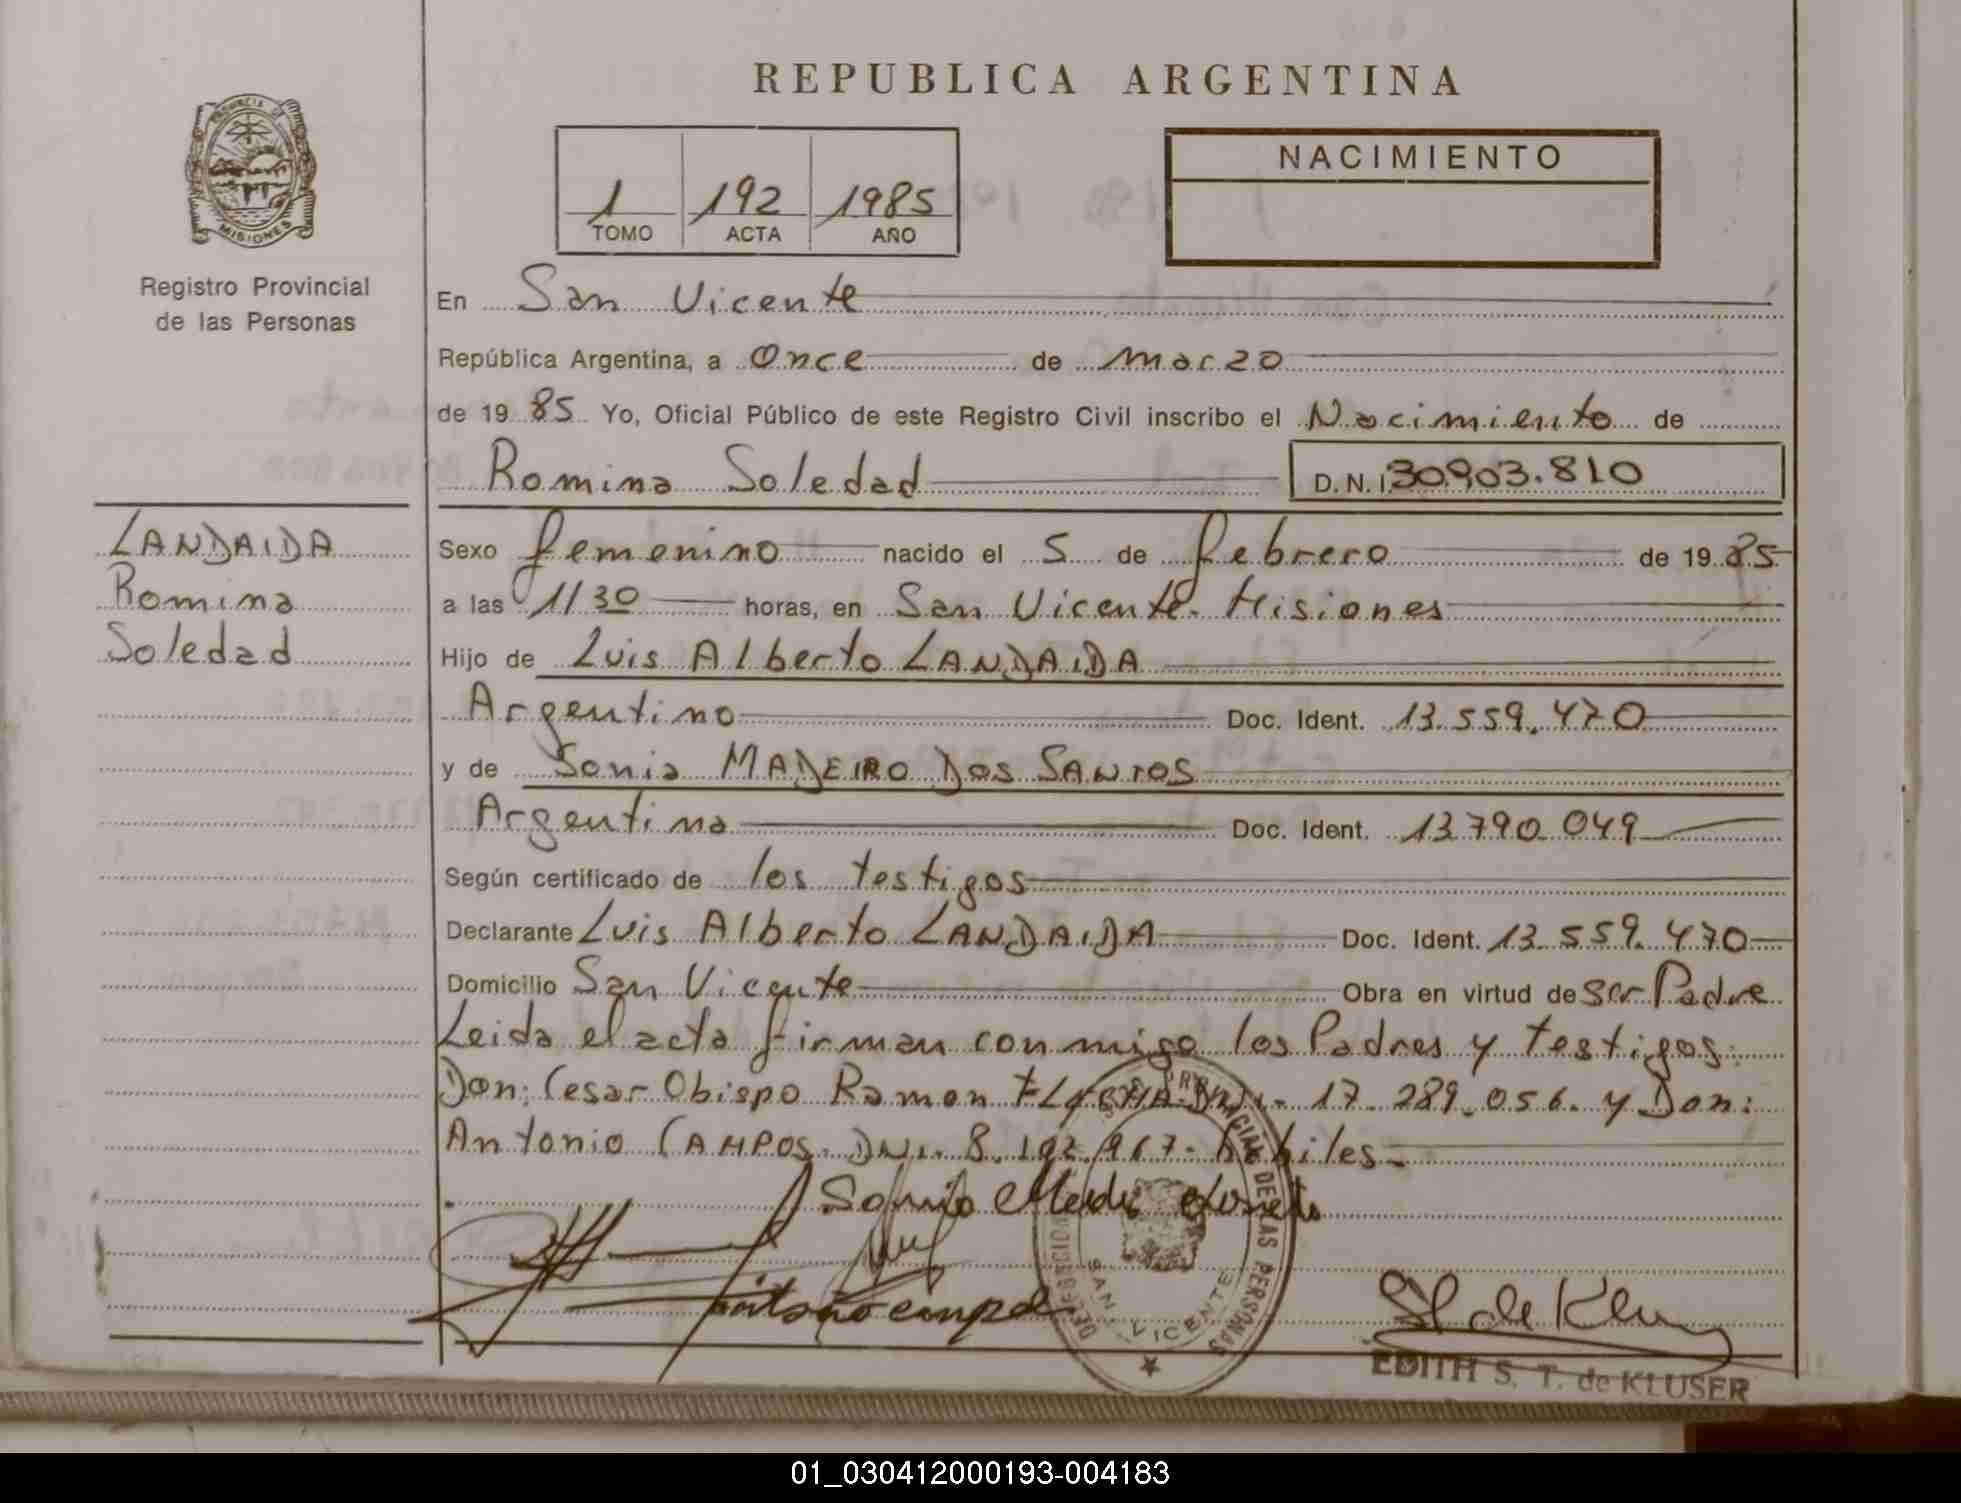 REPUBLICA ARGENTINA
PROVINCIA DE
MISIONES
Registro Provincial
de las Personas
1 192 1985
TOMO ACTA AÑO
NACIMIENTO
En San Vicente
República Argentina, a Once de marzo
de 19 85 Yo, Oficial Público de este Registro Civil inscribo el Nacimiento de
Romina Soledad D.N.I. 30.903.810
LANDAIDA
Romina
Soledad
Sexo femenino nacido el 5 de febrero de 19 85
a las 11 30 horas, en San Vicente - Misiones
Hijo de Luis Alberto LANDAIDA
Argentino Doc. Ident. 13.559.470
y de Sonia MADEIRO DOS SANTOS
Argentina Doc. Ident. 13.790.049
Según certificado de los testigos
Declarante Luis Alberto LANDAIDA Doc. Ident. 13.559.470
Domicilio San Vicente Obra en virtud de ser Padre
Leida el acta firman conmigo los Padres y testigos:
Don: Cesar Obispo Ramon DNI. 17.289.056. y Don:
Antonio CAMPOS. DNI. 8.192.967. habiles.
Sonia
PROVINCIAL DE LAS PERSONAS
SAN VICENTE
EDITH S. T. de KLUSER
01_030412000193-004183